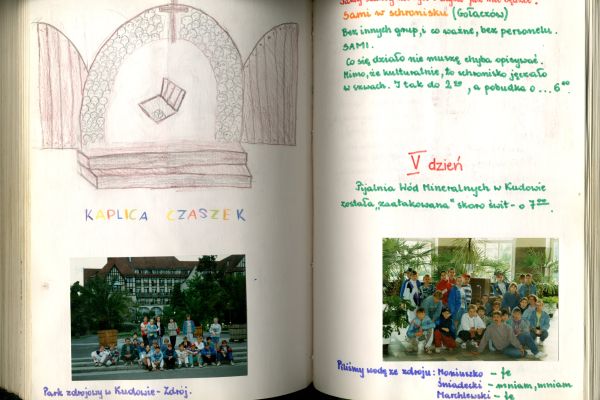 KAPLICA CZASZEK
Park zdrojowy w Kudowie-Zdrój.
Sami w schronisku (Gołaczów)
Bez innych grup, i co ważne, bez personelu.
SAMI.
Co się działo nie muszę chyba opisywać.
Mimo, że kulturalnie, to schronisko jęczało
w szwach. I tak do 2⁰⁰, a pobudka o ... 6⁰⁰.
V dzień
Pijalnia Wód Mineralnych w Kudowie
została „zaatakowana" skoro świt - o 7⁰⁰.
Piliśmy wodę ze zdroju: Moniuszko - fe
Śniadecki - mniam, mniam
Marchlewski - fe